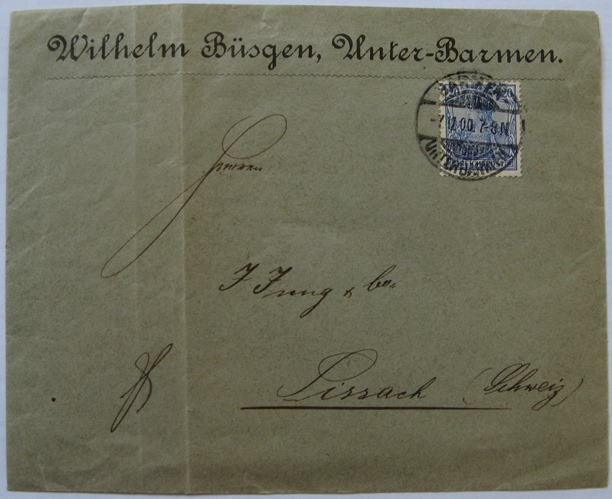 Wilhelm Büsgen, Unter-Barmen.
BARMEN
-7.12.00. 7-8 N
UNTERBARMEN
Herren
J Jung & Co.
Sissach (Schweiz)